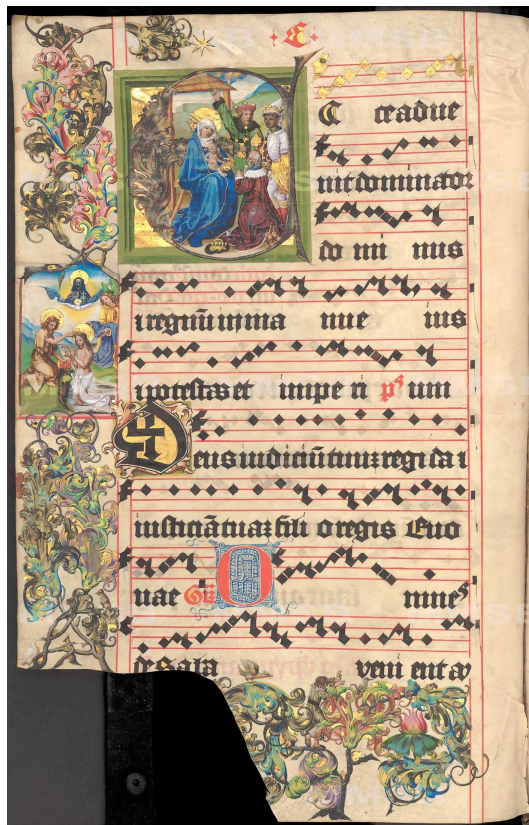 C
Ecceadue
nit dominator
do mi nus
i regnū in ma nue ius
i potestas et impe ri ps um
Deus iudiciū tuuz regi da i
iusticiā tuaz fili o regis Euo
uae Gͥ Omnes
de Saba veni ent au